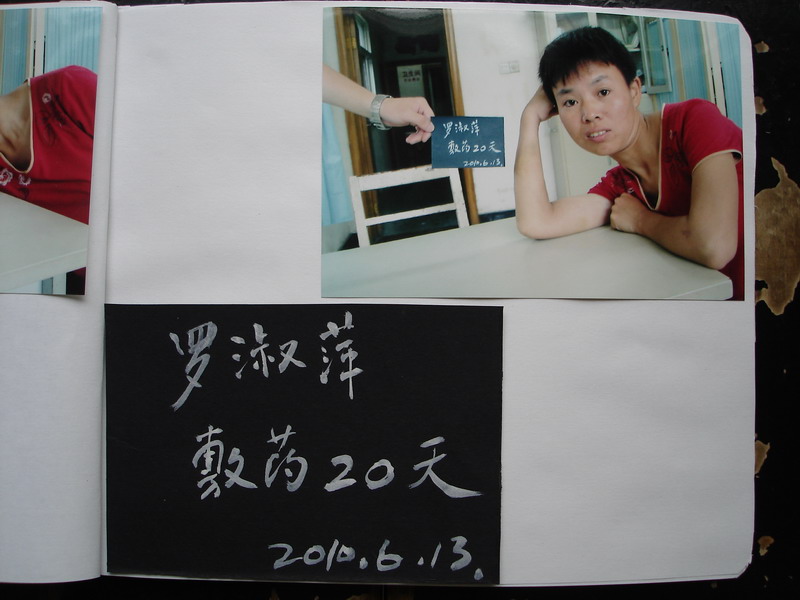 罗淑萍
敷药20天
2010.6.13.
罗淑萍
敷药20天
2010.6.13.